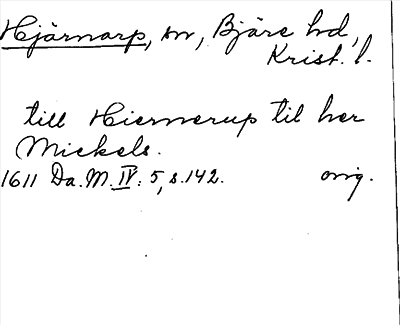 Hjärnarp, sn, Bjäre hd,
Krist. l.
till Hiernerup til her
Mickels.
1611 Da. M. IV: 5, s. 142. orig.